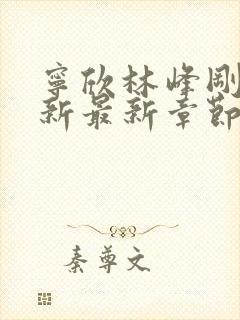 寧欣林峰剛
新最新章節
秦尊文